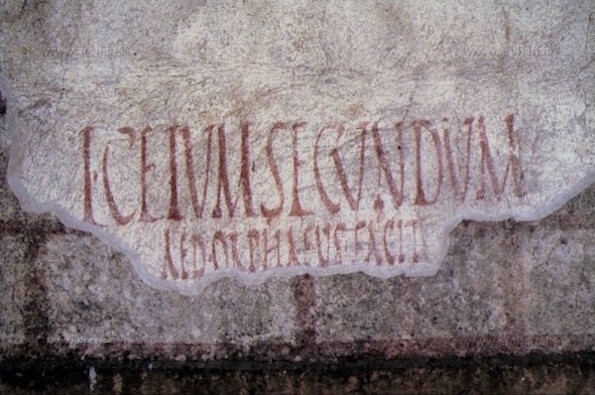 L·CEIVM·SECVNDVM
AED·ORPHAEVS·FACIT